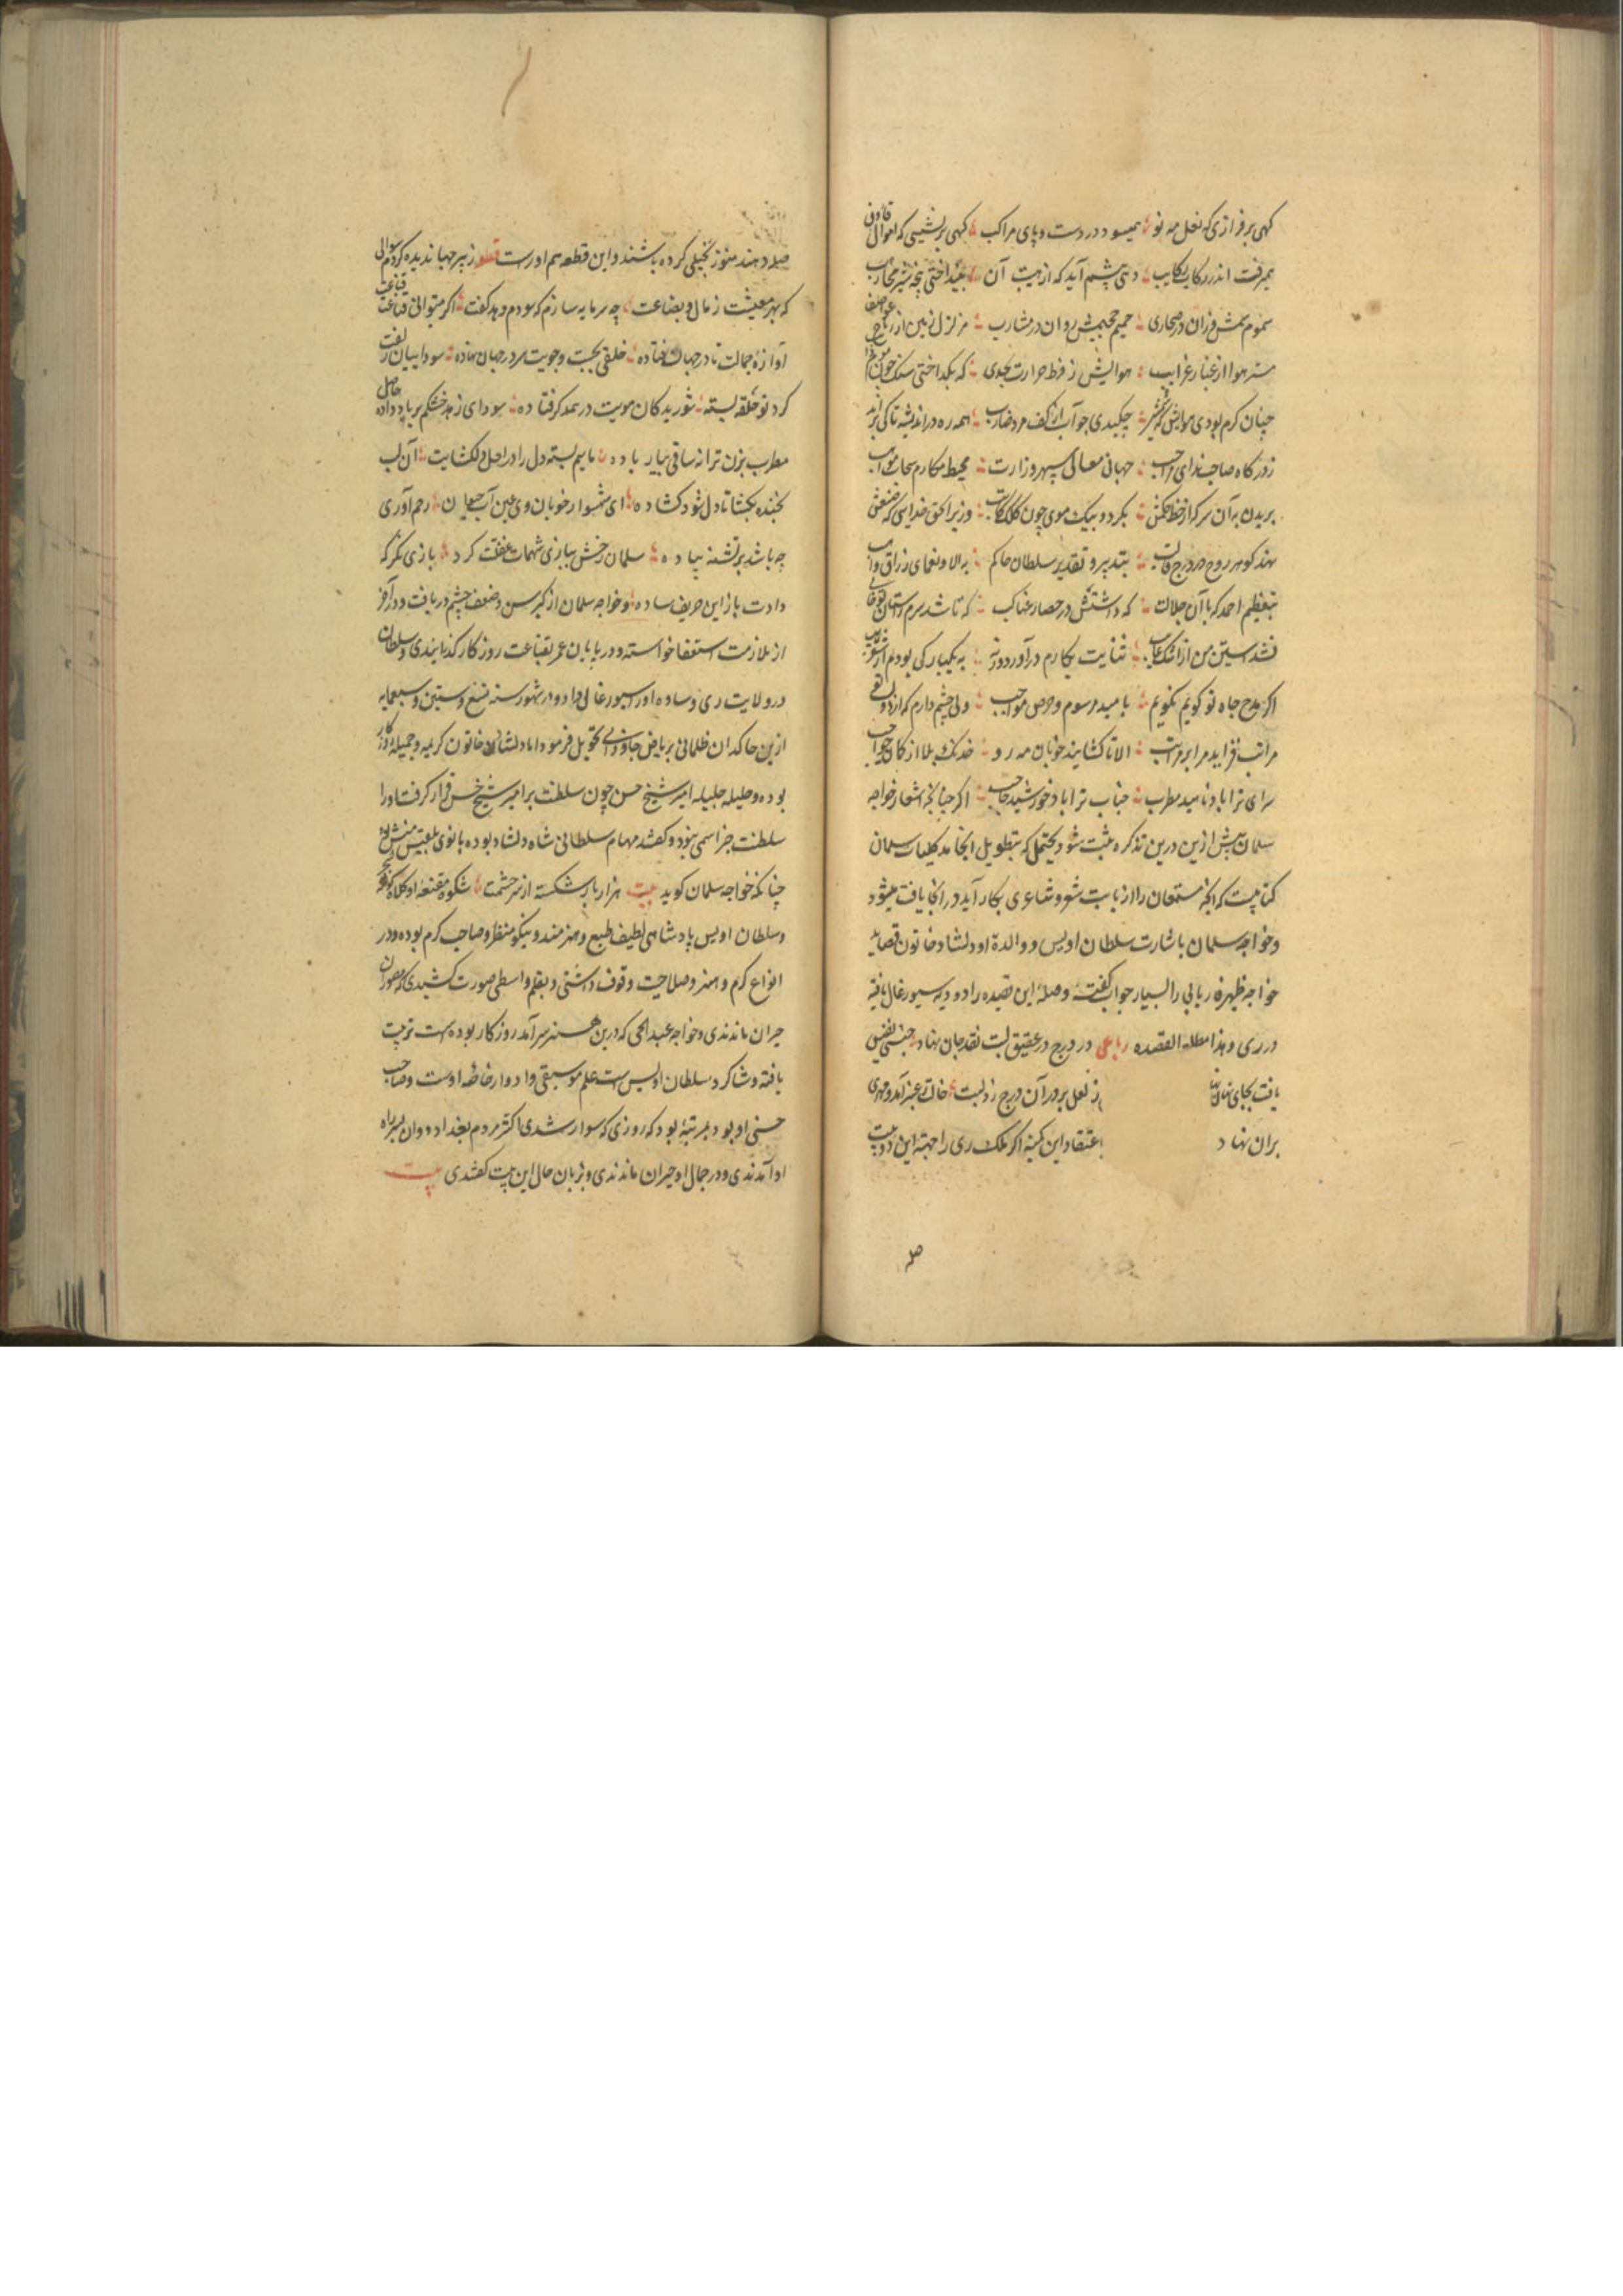 کهی برفرازی که نعل مه نو همیسود در دست و پای مراکب کهی بر نشیبی که اموال قارون
بمرفت اندر رکایب رکایب دشتی پیشم آمد که از هیبت آن بینداختی پنجه شیر محارب
سموم سمش وزان در صحاری حمیم حمیمش روان در مشارب مزلزل زمین از ریاح عواصف
هوا از غبار غرایب هوایش ز فرط حرارت بحدی که بکداختی سنک
چنان کرم بودی هوایش که شمشیر چکیدی چو آب از کف مرد ضارب همه ره در اندیشه تا کی براند
ز درکاه صاحب ندای جهانی معالی سپهر وزارت محیط مکارم سحاب مواهب
بریدن به آن سر کز از خط حکمش بکردد بیک موی چون کلک کاتب وزیر الحق خدایی که صنعش
نهد کوهر روح در درج قالب بتدبیر و تقدیر سلطان حاکم به آلا و نعمای رزاق واهب
بتعظیم احمد که با آن جلالت که داشتش در حصار عناکب که تا شد سرم
نشد آستین من از اشک ثنایت بکارم در آورد ورنه به یکبارکی بودم از شعر تایب
اکر مدح جاه تو کویم نکویم بامید مرسوم و حرص مواجب ولی چشم دارم که از
مراتب فزاید مرا بر مراتب الا تا کشایند خوبان مه رو خدنک بلا از کمان حواجب
سرای ترا باد ناهید مطرب جناب ترا باد خورشید حاجب اکر چنانجه اشعار خواجه
سلمان بیش ازین درین تذکره مثبت شود یحتمل که بتطویل انجامد کلیات سلمان
کتابیست که انجه مستعدان را از بابت شعر و شاعری بکار آید در آنجا یافت میشود
و خواجه سلمان باشارت سلطان اویس و والدهٔ او دلشاد خاتون قصاید
خواجه ظهیر فاریابی را بسیار جواب کفته وصلهٔ این قصیده را دو دیه سیورغال یافته
در ری و هذا مطلع القصده رباعی در درج در عقیق لبت نقد جان نهاد جنسی نفیس
یافت بجای نهان نهاد قفلی ز لعل بر در آن درج زد لبت خالت ز عنبر آمد و مهری
بران نهاد باعتقاد این کمینه اکر ملک ری را جهتهٔ این دو بیت
صله
صله دهند هنوز بخیلی کرده باشند و این قطعه هم اوراست قطعه ز پیر جهاندیده کردم سوالی
که بهر معیشت ز مال و بضاعت چه سرمایه سازم که سودم دهد کفت اکر میتوانی قناعت قناعت
آوازهٔ جمالت تا در جهان فتاده خلقی بجست و جویت سر در جهان نهاده سوداییان زلفت
کرد تو حلقه بسته شوریدکان مویت در همه کرفتاده سودای زهد خشکم بر باد داده حاصل
مطرب بزن ترانه ساقی بیار باده ماییم بسته دل را در لعل دلکشایت آن لب
بخنده بکشا تا دل شود کشاده ای شهسوار خوبان وی عین آب حیوان رحم آوری
چه باشد بر تشنه پیاده سلمان رخش ببازی شهمات عشقت کرد بازی نکر که
دادت باز این حریف ساده و خواجه سلمان از کبر سن و ضعف چشم دریافت و در آخر
از ملازمت استعفا خواسته و در پایان عمر بقناعت روزکار کذرانیدی و سلطان
در ولایت ری و ساوه او را سیورغالی داد و در شهور سنه تسع و ستین و سبعمایه
ازین خاکدان ظلمانی بریاض جاودانی تحویل فرمود اما دلشاد خاتون کریمه و جمیلهٔ روزکار
بوده و حلیله جلیله امیر شیخ حسن چون سلطنت بر امیر شیخ حسن قرار کرفت او را
سلطنت جز اسمی نبود و کفتند مهام سلطانی شاه دلشاد بوده بانوی بلقیس منش بود
چنانکه خواجه سلمان کوید بیت هزار بار شکسته از سر حشمت شکوه مقنعه او کلاه
و سلطان اویس پادشاهی لطیف طبع و هنرمند و نیکو منظر و صاحب کرم بوده و در
انواع کرم و هنر و صلاحیت وقوف داشتی و بقلم واسطی صورت کشیدی که مصوران
حیران ماندندی و خواجه عبدالحی که درین هنر سرآمد روزکار بوده است تربیت
یافته و شاکرد سلطان اویس است علم موسیقی و ادوار خاصه اوست و صاحب
حسنی او بود بمرتبهٔ بود که روزی که سوار شدی اکثر مردم بغداد دوان بسر راه
او آمدندی و در جمال او حیران ماندندی و بزبان حال این بیت کفتندی بیت